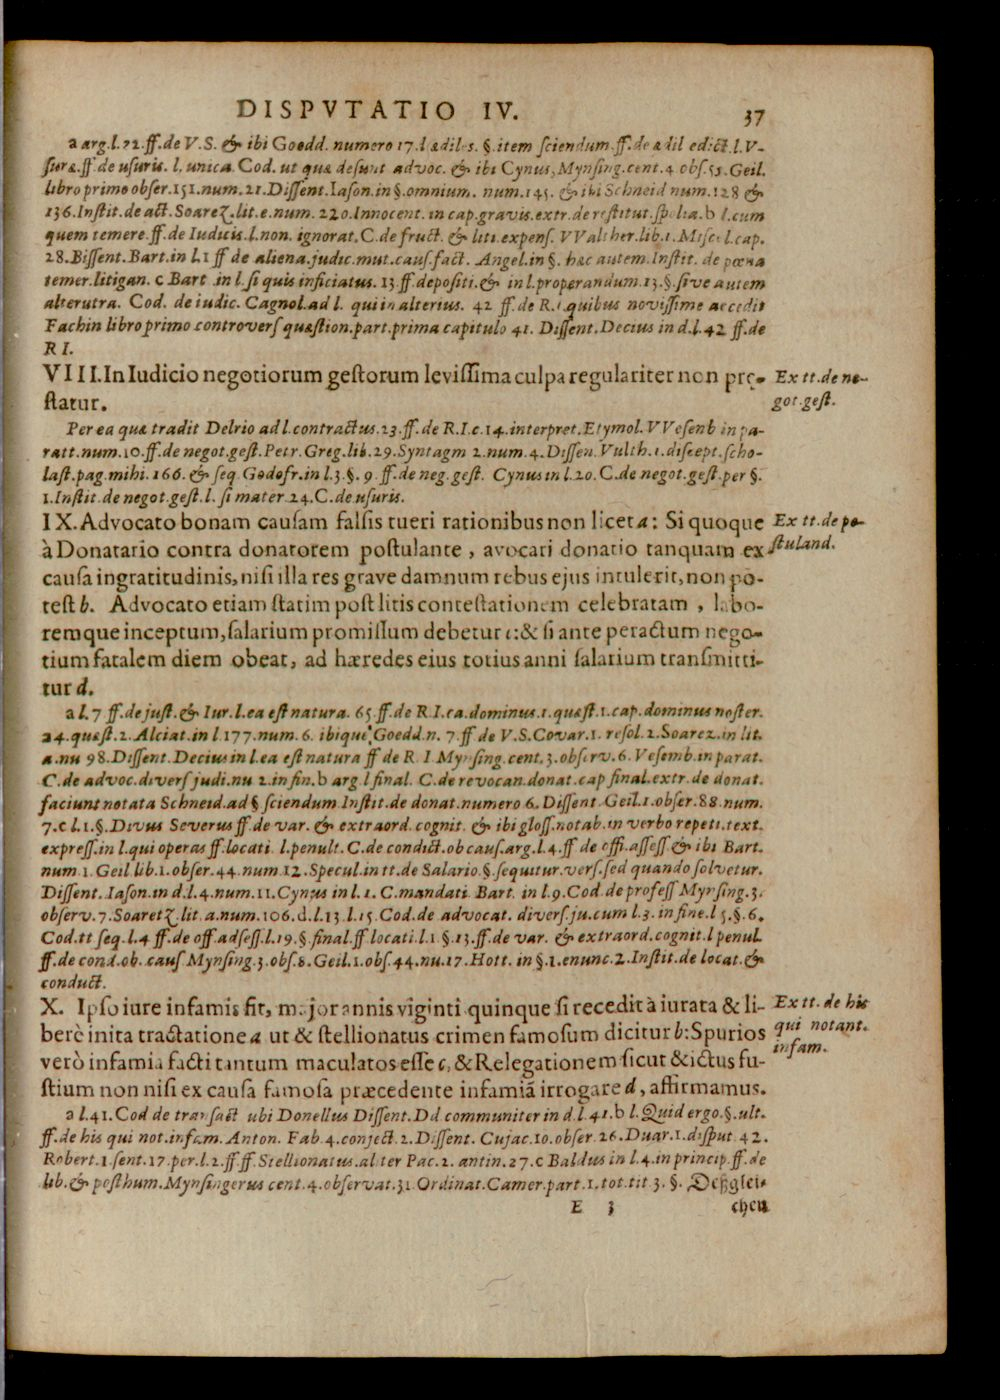 DISPVTATIO IV. 37
a arg.l.72.ff.de V.S. & ibi Goedd. numero 17.l ædiles. §.item sciendum.ff.de ædil edict.l.V-
suræ.ff.de usuris. l. unica. Cod. ut quæ desunt advoc. & ibi Cynus, Mynsing.cent.4 obs.55. Geil.
libro primo obser.151.num.21.Dissent.Iason.in §.omnium. num.145. & ibi Schneid num.128 &
136.Instit.de act.Soarez.lit.e.num.220.Innocent.in cap.gravis.extr.de restitut.spolia.b l.cum
quem temere.ff.de Iudicis.l.non. ignorat.C.de fruct. & liti.expens. VValther.lib.1.Miscel.cap.
28.Bissent.Bart.in l.1 ff de aliena.judic.mut.caus.fact. Angel.in §. hæc autem.Instit. de pœna
temer.litigan. c Bart in l.si quis inficiatus. 13.ff.depositi.& in l.properandum.13.§.sive autem
alterutra. Cod. de iudic. Cagnol.ad l. qui in alterius. 42 ff.de R.I.quibus novissime accedit
Fachin libro primo controvers quæstion.part.prima capitulo 41. Dissent.Decius in d.l.42 ff.de
R I.
VIII.In Iudicio negotiorum gestorum levissima culpa regulariter non pręstatur.
Ex tt.de ne-
statur.
got.gest.
Per ea quæ tradit Delrio ad l.contractus.23.ff.de R.I.c.14.interpret.Etymol.VVesenb in pa-
ratt.num.10.ff.de negot.gest.Petr.Greg.lib.29.Syntagm 2.num.4.Dissen.Vulth.1.discept.scho-
last.pag.mihi.166.& seq Godofr.in l.3.§. 9 ff.de neg.gest. Cynus in l.20. C.de negot.gest.per §.
1.Instit de negot.gest.l. si mater 24.C.de usuris.
IX.Advocato bonam causam falsis tueri rationibus non licet a: Si quoque
Ex tt.de po-
à Donatario contra donatorem postulante, avocari donatio tanquam ex
stuland.
causa ingratitudinis, nisi illa res grave damnum rebus ejus intulerit, non po-
test b. Advocato etiam statim post litis contestationem celebratam, labo-
remque inceptum, salarium promissum debetur c:& si ante peractum nego-
tium fatalem diem obeat, ad hæredes eius totius anni salarium transmitti-
tur d.
a l.7 ff.de just.& Iur.l.ea est natura. 65.ff.de R.I.ca.dominus.1.quæst.1.cap.dominus noster.
24.quæst.2.Alciat.in l.177.num.6. ibique Goedd.n. 7.ff de V.S.Covar.1. resol.2.Soarez.in lit.
a.nu 98.Dissent.Decius in l.ea est natura ff de R I Mynsing.cent.3.observ.6.Vesemb.in parat.
C.de advoc.divers judi.nu 2.in fin.b arg l final. C.de revocan.donat.cap final.extr.de donat.
faciunt notata Schneid.ad § sciendum.Instit.de donat.numero 6. Dissent Geil.1.obser.88.num.
7.c l.1.§.Divus Severus ff.de var. & extraord.cognit. & ibi gloss.notab.in verbo repeti.text.
express.in l.qui operas ff.locati. l.penult.C.de condict.ob caus.arg.l.4.ff de offi.assess & ibi Bart.
num 1. Geil lib.1.obser.44.num.12.Specul.in tt.de Salario §.sequitur.vers.sed quando solvetur.
Dissent.Iason.in d.l.4.num.11.Cynus in l.1.C.mandati Bart. in l.9.Cod.de profess Mynsing.3.
observ.7.Soaretz.lit.a.num.106.d.l.13.l.15.Cod.de advocat. divers.ju.cum l.3. in fine.l 5.§.6.
Cod.tt seq.l.4 ff.de off.adsess.l.19.§.final.ff locati.l.1.§.13.ff.de var. & extraord.cognit.l penul.
ff.de cond.ob. caus Mynsing.3.obs.8.Geil.1.obs.44.nu.17.Hott. in §.1.enunc.2.Instit.de locat.&
conduct.
X. Ipso iure infamis fit, major annis viginti quinque si recedit à iurata & li-
Ex tt. de his
berè inita tractatione a ut & stellionatus crimen famosum dicitur b:Spurios
qui notant.
verò infamia facti tantum maculatos esse c, & Relegationem sicut & ictus fu-
infam.
stium non nisi ex causa famosa præcedente infamiã irrogare d, affirmamus.
a l.41.Cod de transact ubi Donellus Dissent.Dd communiter in d.l.41.b l.Quid ergo.§.ult.
ff.de his qui not.infam.Anton. Fab.4.conject.2.Dissent. Cujac.10.obser.26.Duar.1.disput 42.
Robert.1.sent.17.per.l.2.ff.ff.Stellionatus.alter Pac.2. antin.27.c Baldus in l.4.in princip.ff.de
lib.& posthum.Mynsingerus cent.4.observat.31 Ordinat.Camer.part.1.tot.tit 3. §. Deßglei-
E 3 chen